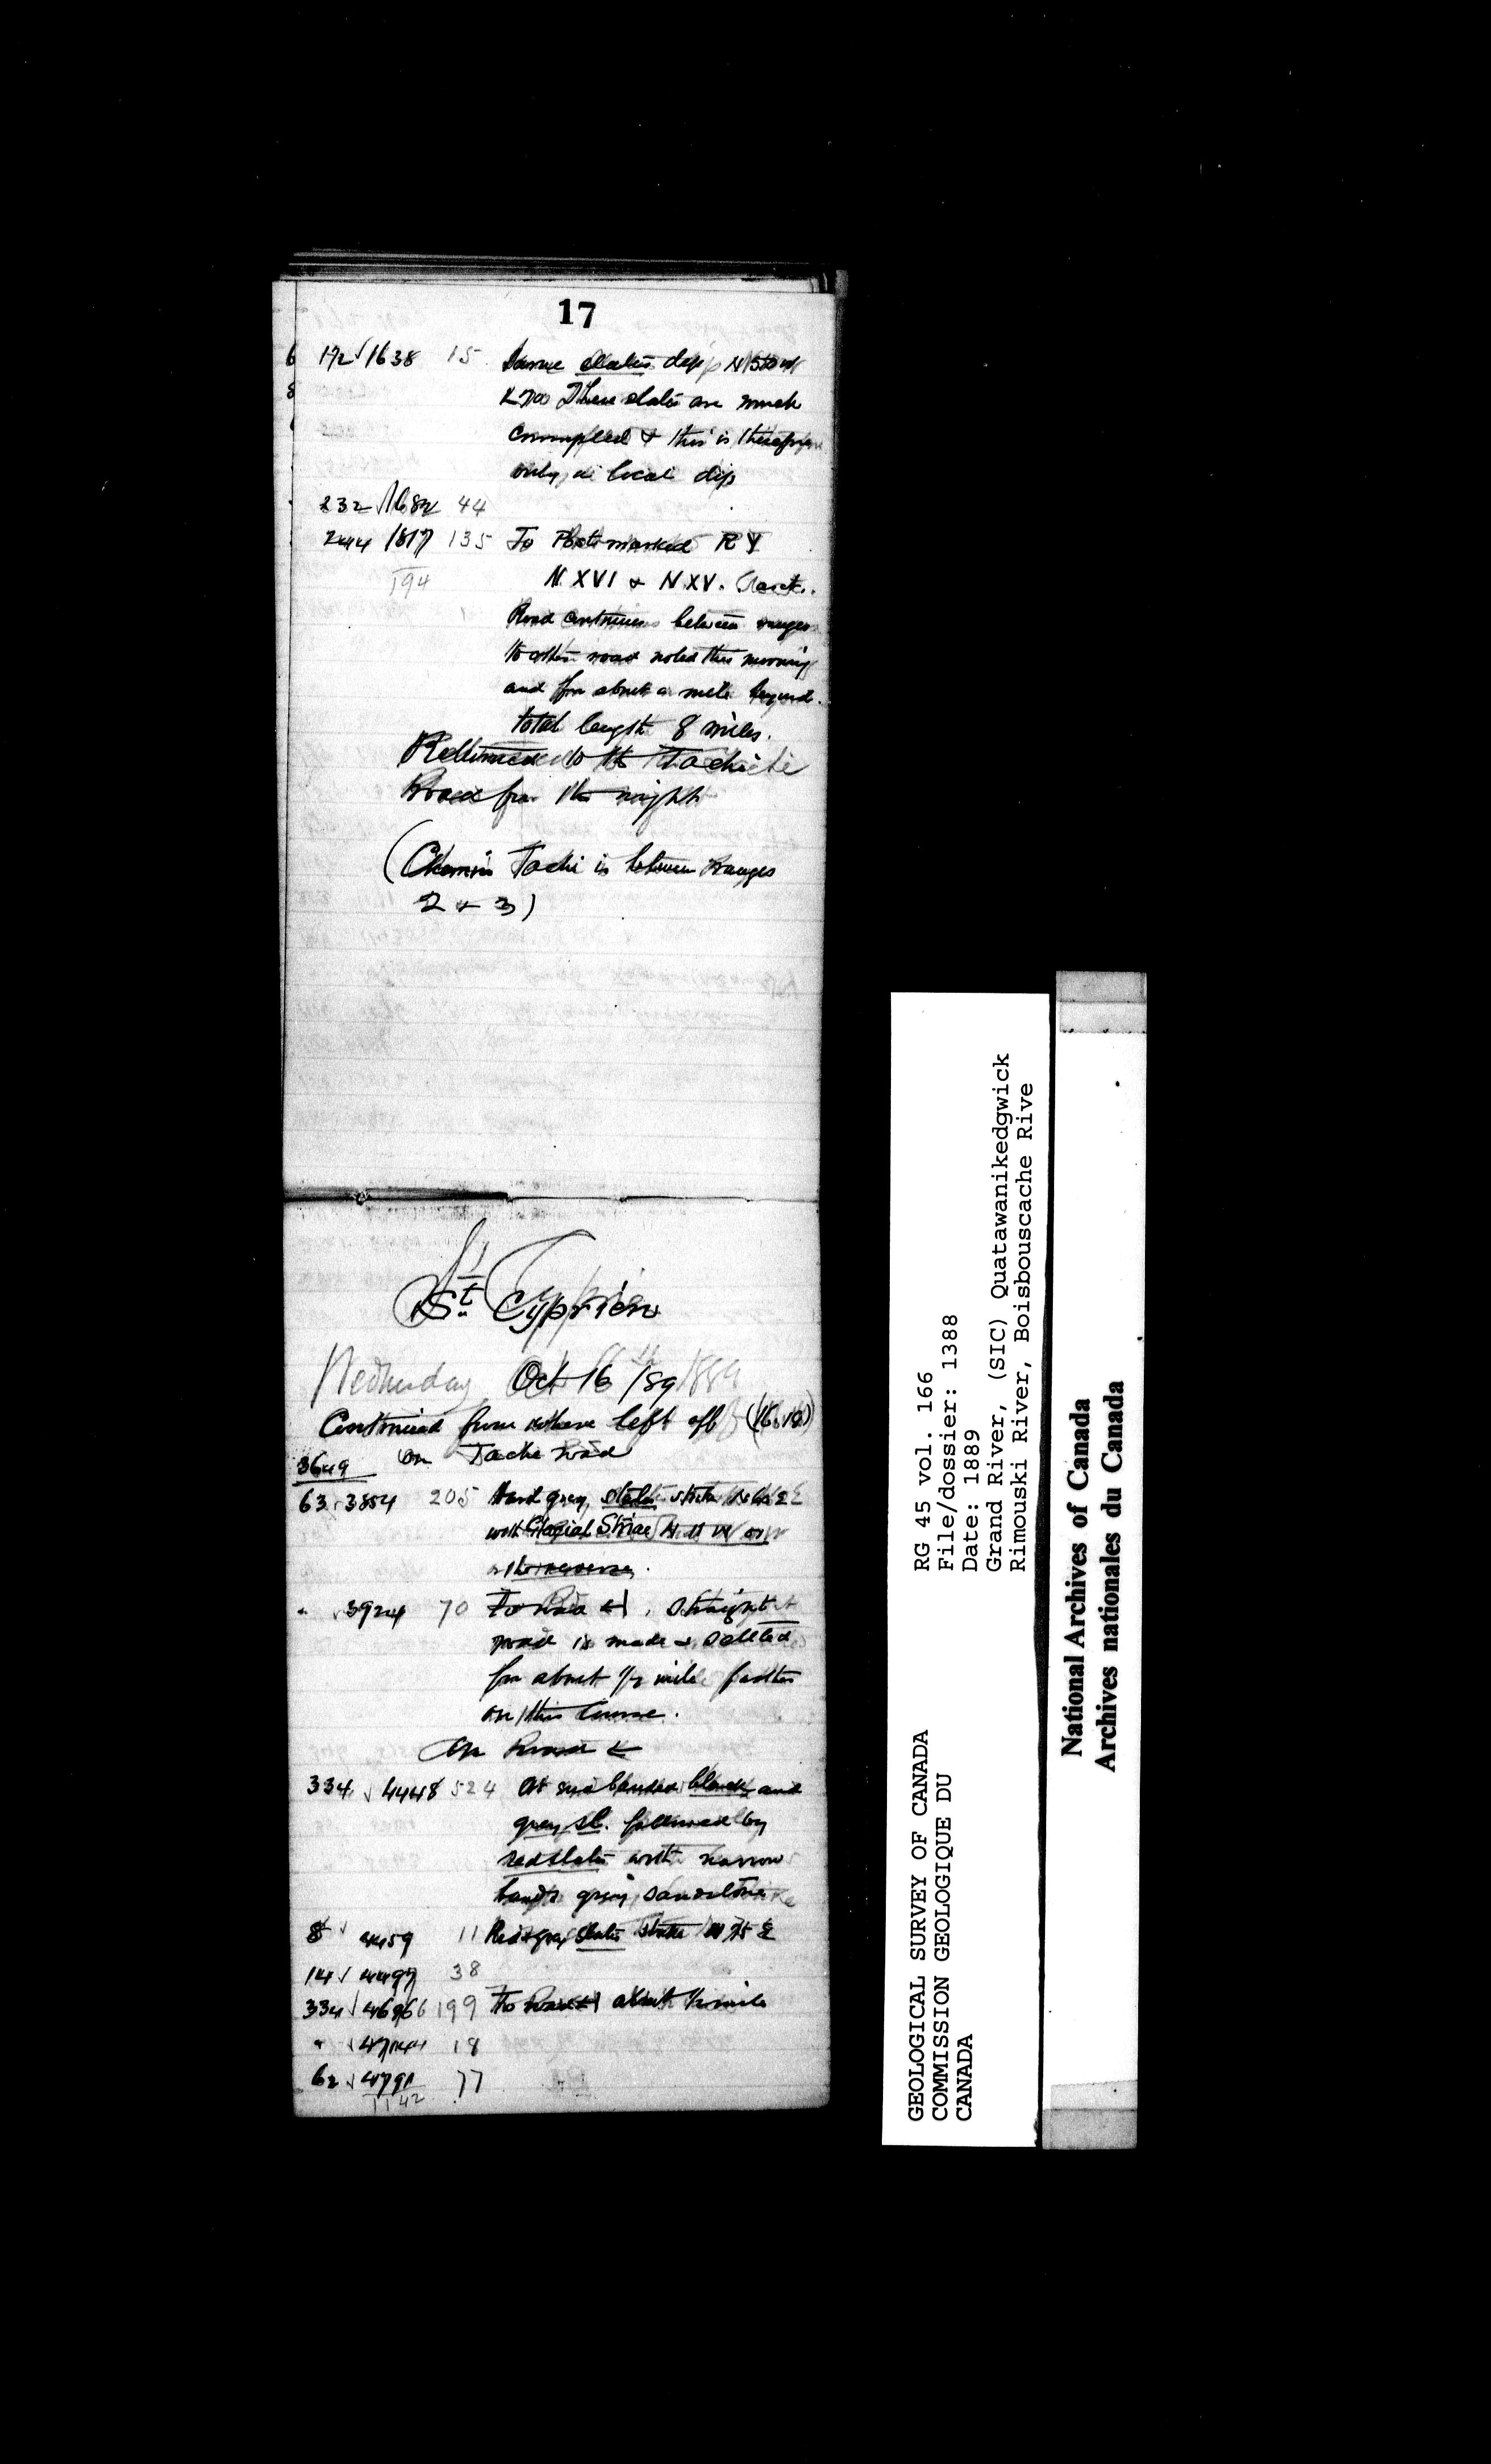 17
172 √ 1638 15 Same slates dip N 50 W
< 70 These slates are much
crumpled & this is therefore
only a local dip
232 √ 1682 44
244 1817 135 To Post marked R Y
194 N. XVI & N. XV.
Road continues between ranges
to other road noted this morning
and for about a mile beyond.
total length 8 miles.
Returned to the Taché
Road for the night
(Chemin Taché is between Ranges
2 & 3)
St. Cyprien
Wednesday Oct 16 /89 1889
Continued from where left off
3649 on Tache road
63 3854 205 Hard grey slates strike
with Glacial Striae N W or
the reverse.
" √ 3924 70 To Road straight
road is made & settled
for about 1/2 mile farther
on this course.
On Road ←
334 √ 4448 524 At end banded black and
grey sl. followed by
red slates with narrow
bands grey sandstone
8 √ 4459 11 Red & grey slates strike N 75 E
14 √ 4497 38
334 √ 4696 199 To Road about 1/2 mile
" √ 4714 18
62 √ 4791 77
1142
GEOLOGICAL SURVEY OF CANADA
COMMISSION GEOLOGIQUE DU
CANADA
RG 45 vol. 166
File/dossier: 1388
Date: 1889
Grand River, (SIC) Quatawanikedgwick
Rimouski River, Boisbouscache Rive
National Archives of Canada
Archives nationales du Canada